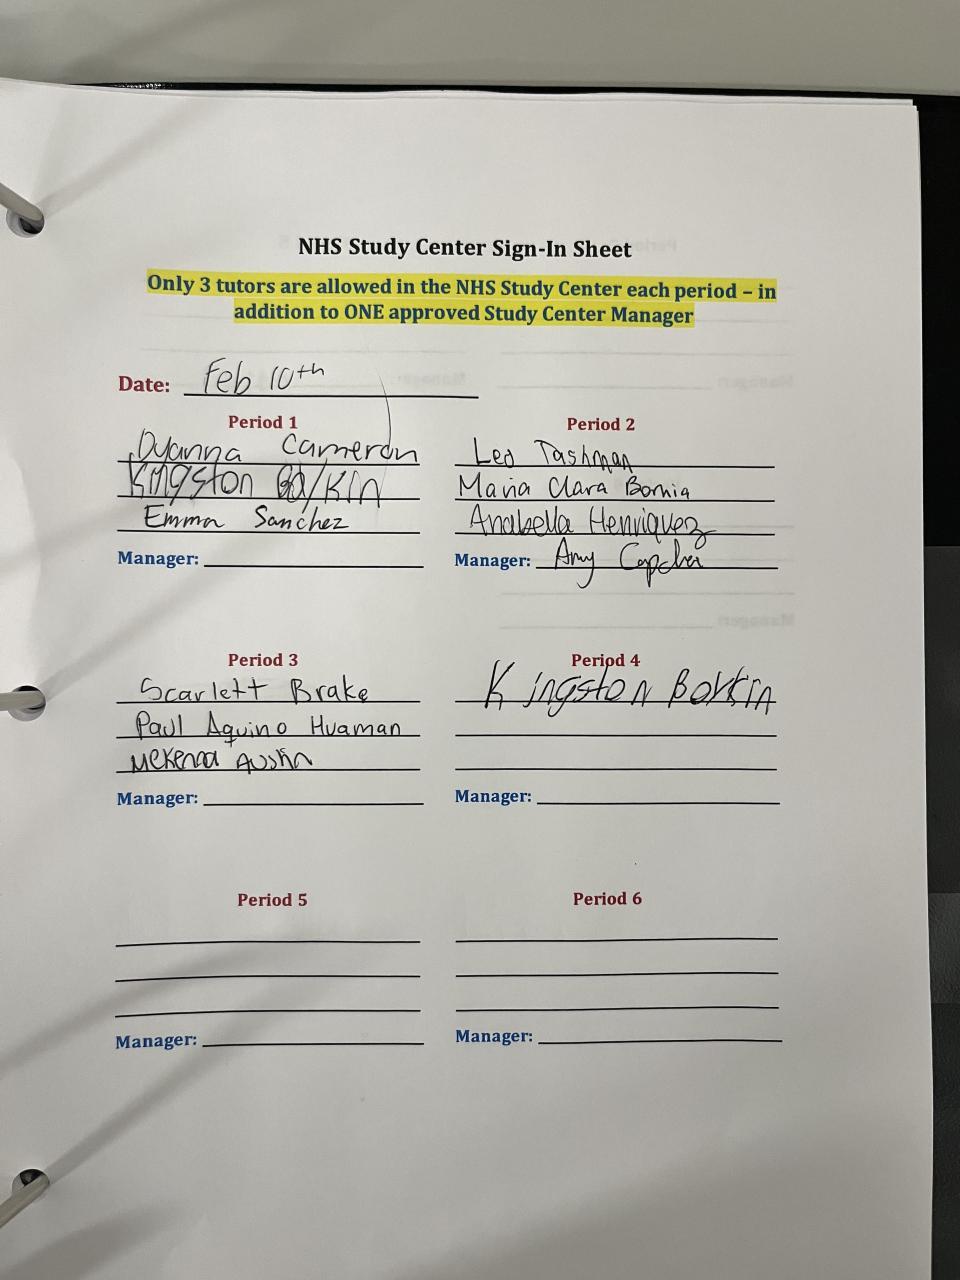 NHS Study Center Sign-In Sheet
Only 3 tutors are allowed in the NHS Study Center each period – in
addition to ONE approved Study Center Manager
Date: Feb 10th
Period 1
Dyanna Cameron
Kingston
Emma Sanchez
Manager:
Period 2
Leo Tashman
Maria Clara Bornia
Anabella Henriquez
Manager: Amy
Period 3
Scarlett Brake
Paul Aquino Huaman
Mckenna Austin
Manager:
Period 4
Kingston Borkin
Manager:
Period 5
Manager:
Period 6
Manager: